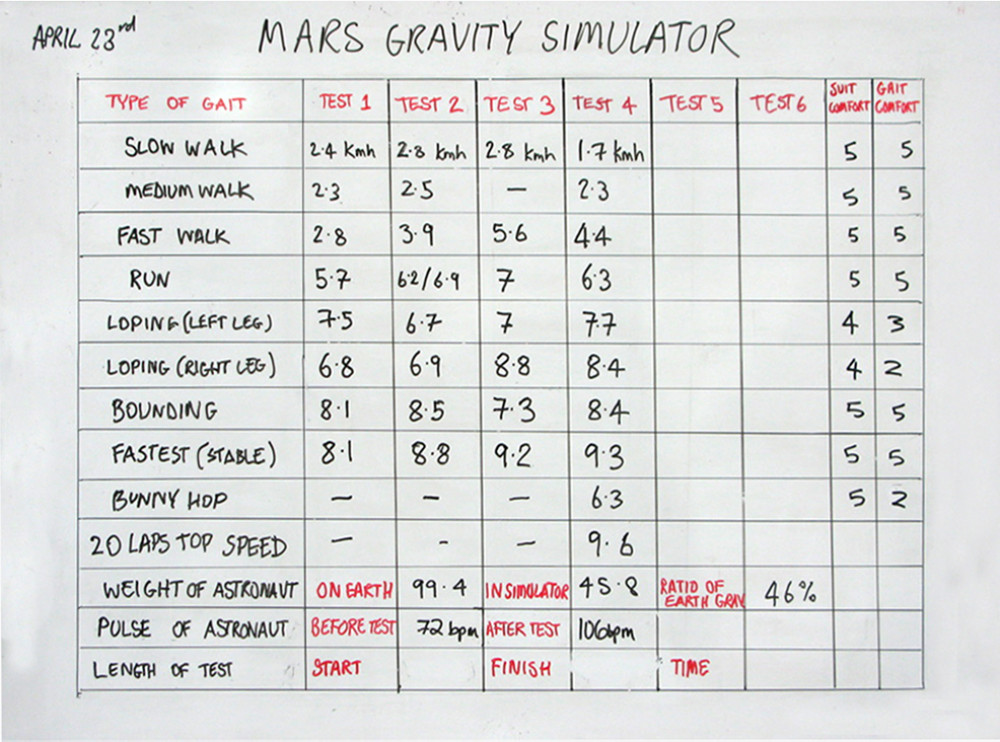 APRIL 23rd MARS GRAVITY SIMULATOR
TYPE OF GAIT TEST 1 TEST 2 TEST 3 TEST 4 TEST 5 TEST 6 SUIT COMFORT GAIT COMFORT
SLOW WALK 2.4 Kmh 2.8 kmh 2.8 kmh 1.7 kmh 5 5
MEDIUM WALK 2.3 2.5 — 2.3 5 5
FAST WALK 2.8 3.9 5.6 4.4 5 5
RUN 5.7 6.2/6.9 7 6.3 5 5
LOPING (LEFT LEG) 7.5 6.7 7 7.7 4 3
LOPING (RIGHT LEG) 6.8 6.9 8.8 8.4 4 2
BOUNDING 8.1 8.5 7.3 8.4 5 5
FASTEST (STABLE) 8.1 8.8 9.2 9.3 5 5
BUNNY HOP — — — 6.3 5 2
20 LAPS TOP SPEED — - — 9.6
WEIGHT OF ASTRONAUT ON EARTH 99.4 IN SIMULATOR 45.8 RATIO OF EARTH GRAV 46%
PULSE OF ASTRONAUT BEFORE TEST 72 bpm AFTER TEST 106bpm
LENGTH OF TEST START FINISH TIME